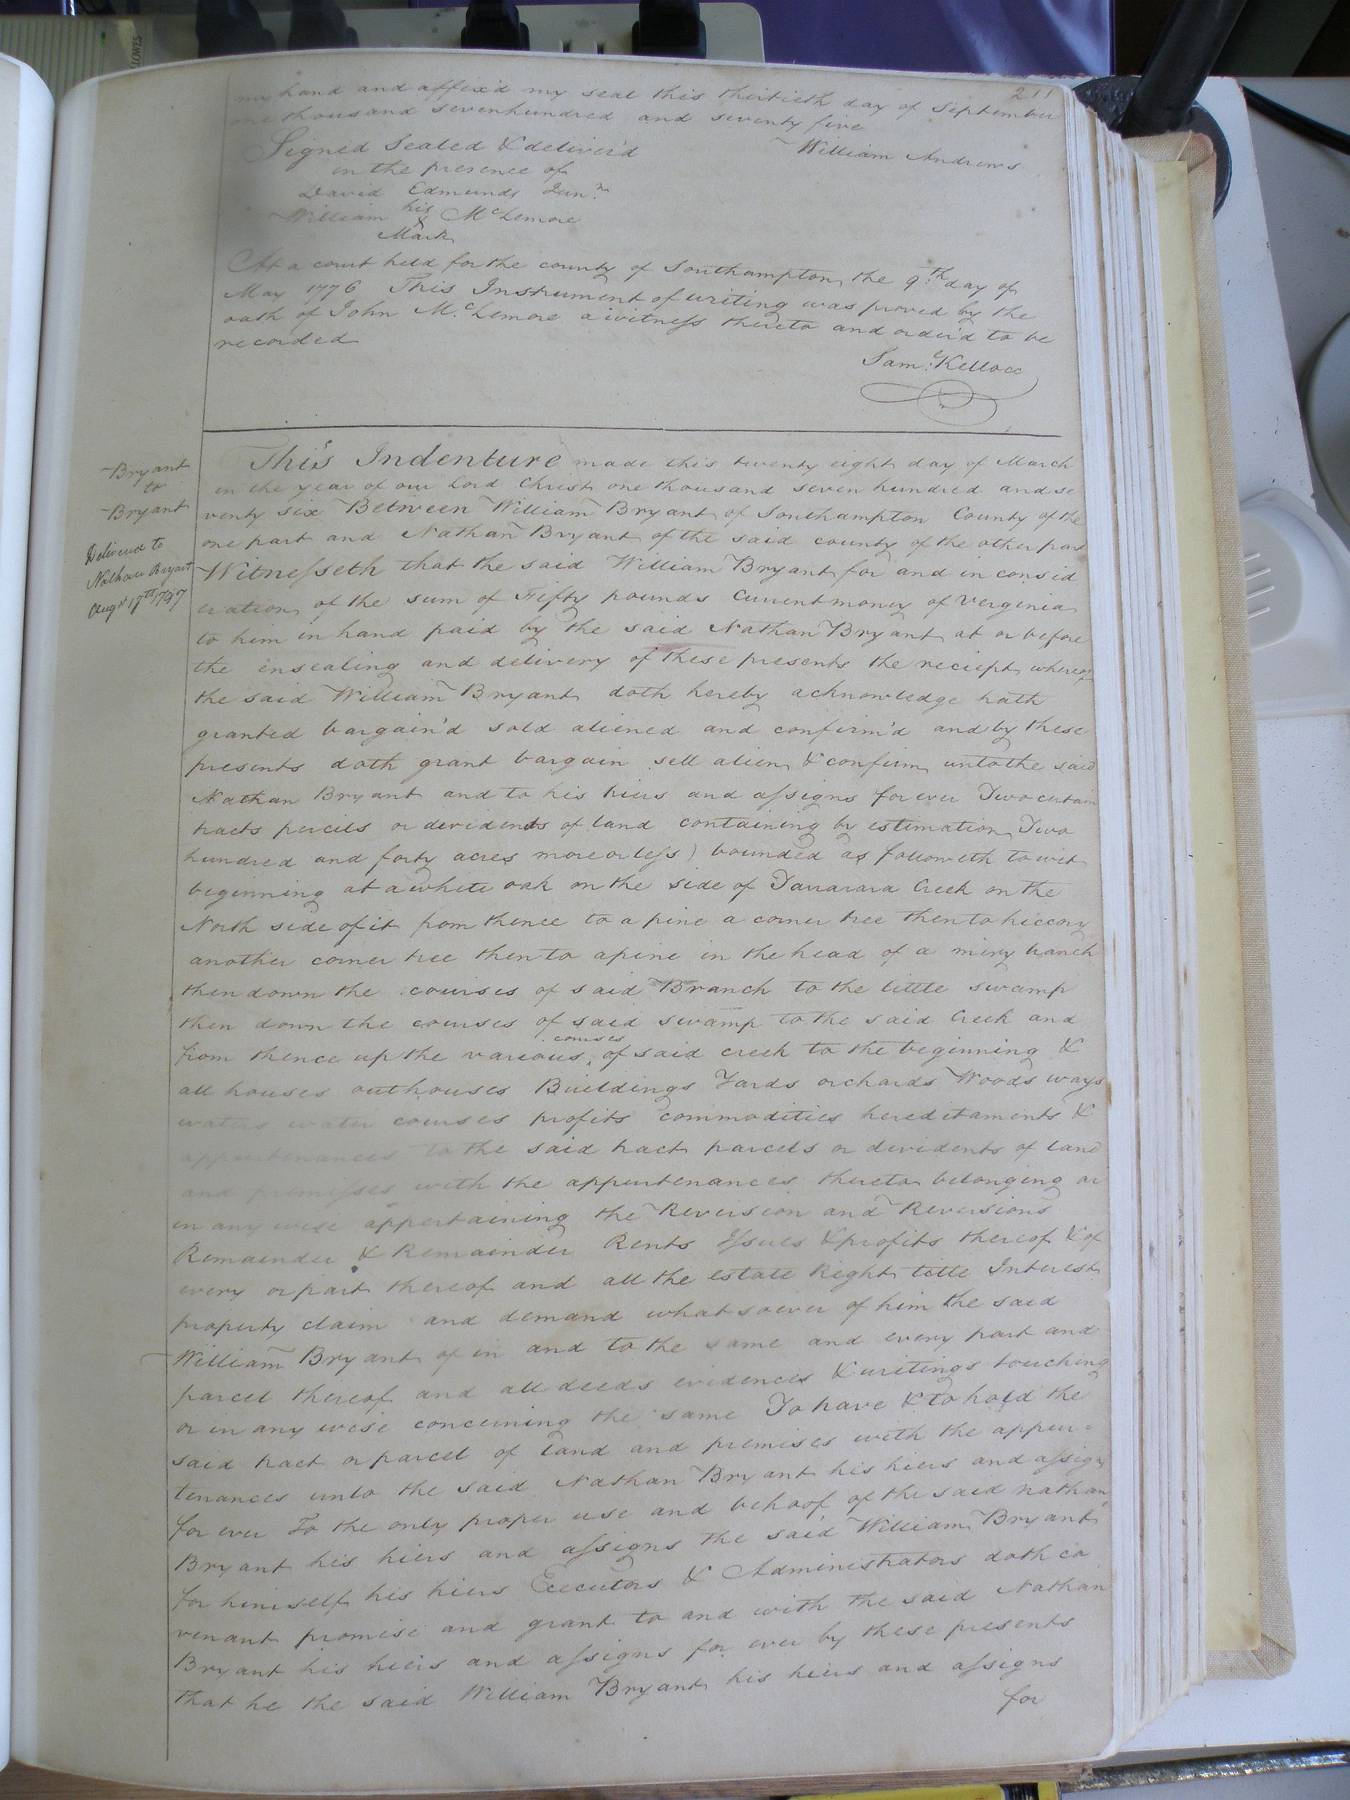 211
my hand and affix'd my seal this thirtieth day of September
one thousand sevenhundred and seventy five
William Andrews
Signed Sealed & deliver'd
in the presence of
David Edmunds Junr.
William his X McLemore
Mark
At a court held for the county of Southampton the 9th. day of
May 1776 This Instrument of writing was proved by the
oath of John Mc.Lemore a witness thereto and order'd to be
recorded
Saml. Kello cc
Bryant
to
Bryant
Delivered to
Nathan Bryant
Augst 17th
This Indenture made this twenty eight day of March
in the year of our Lord Christ one thousand seven hundred and se
venty six Between William Bryant of Southampton County of the
one part and Nathan Bryant of the said county of the other part
Witnesseth that the said William Bryant for and in consid
eration of the sum of Fifty pounds Current money of Verginia
to him in hand paid by the said Nathan Bryant at or before
the ensealing and delivery of these presents the reciept whereof
the said William Bryant doth hereby acknowledge hath
granted bargain'd sold aliened and confirm'd and by these
presents doth grant bargain sell alien & confirm unto the said
Nathan Bryant and to his hiers and assigns for ever Two certain
tracts percils or devidends of land containing by estimation Two
hundred and forty acres more or less) bounded as followeth to wit
beginning at a white oak on the side of Tararara Creek on the
North side of it from thence to a pine a corner tree then to hiccory
another corner tree then to a pine in the head of a miry branch
then down the courses of said Branch to the little swamp
then down the courses of said swamp to the said Creek and
from thence up the various courses of said creek to the beginning &
all houses outhouses Buildings Yards orchards Woods ways
waters water courses profits commodities hereditaments &
appurtenances to the said tract parcels or dividents of land
and premisses with the appurtenances thereto belonging or
in any wise appertaining the Reversion and Reversions
Remainder & Remainder Rents Issues & profits thereof & of
every or part thereof and all the estate Right title Interest
property claim and demand whatsoever of him the said
William Bryant of in and to the same and every part and
parcel thereof and all deeds evidences & writings touching
or in any wise concerning the same To have & to hold the
said tract or parcel of land and premises with the appur=
tenances unto the said Nathan Bryant his hiers and assigns
for ever To the only proper use and behoof of the said nathan
Bryant his hiers and assigns the said William Bryant
for himself his hiers Executors & Administrators doth co
venant promise and grant to and with the said Nathan
Bryant his hiers and assigns for ever by these presents
that he the said William Bryant his hiers and assigns
for